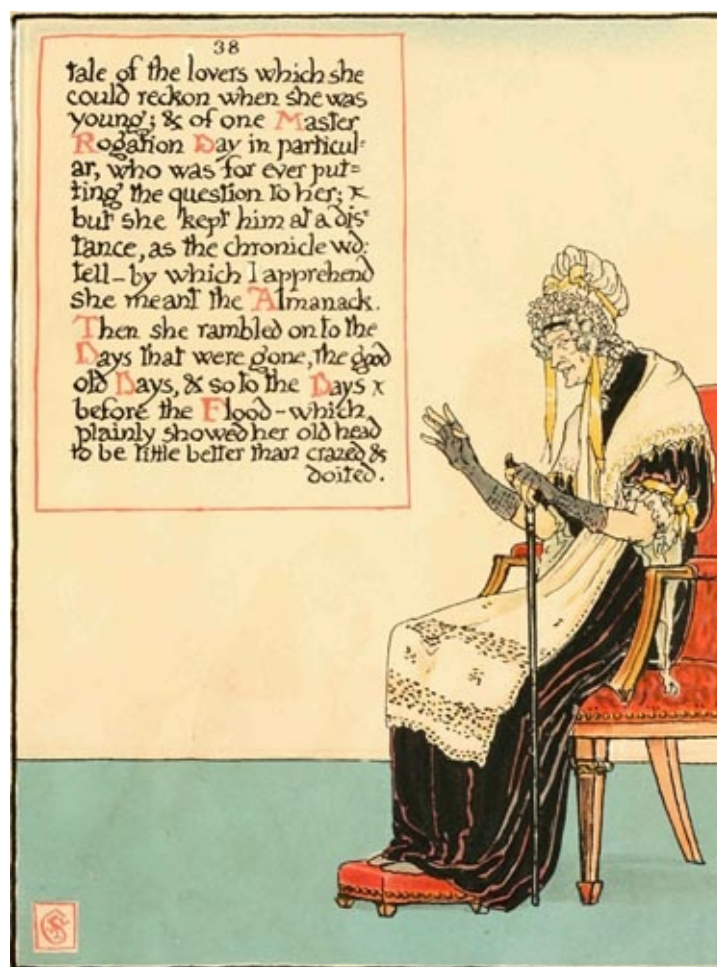 38
tale of the lovers which she
could reckon when she was
young; & of one Master
Rogation Day in particul=
ar, who was for ever put=
ting the question to her; x
but she kept him at a dis=
tance, as the chronicle wd:
tell—by which I apprehend
she meant the Almanack.
Then she rambled on to the
Days that were gone, the good
old Days, & so to the Days x
before the Flood—which
plainly showed her old head
to be little better than crazed &
doited.